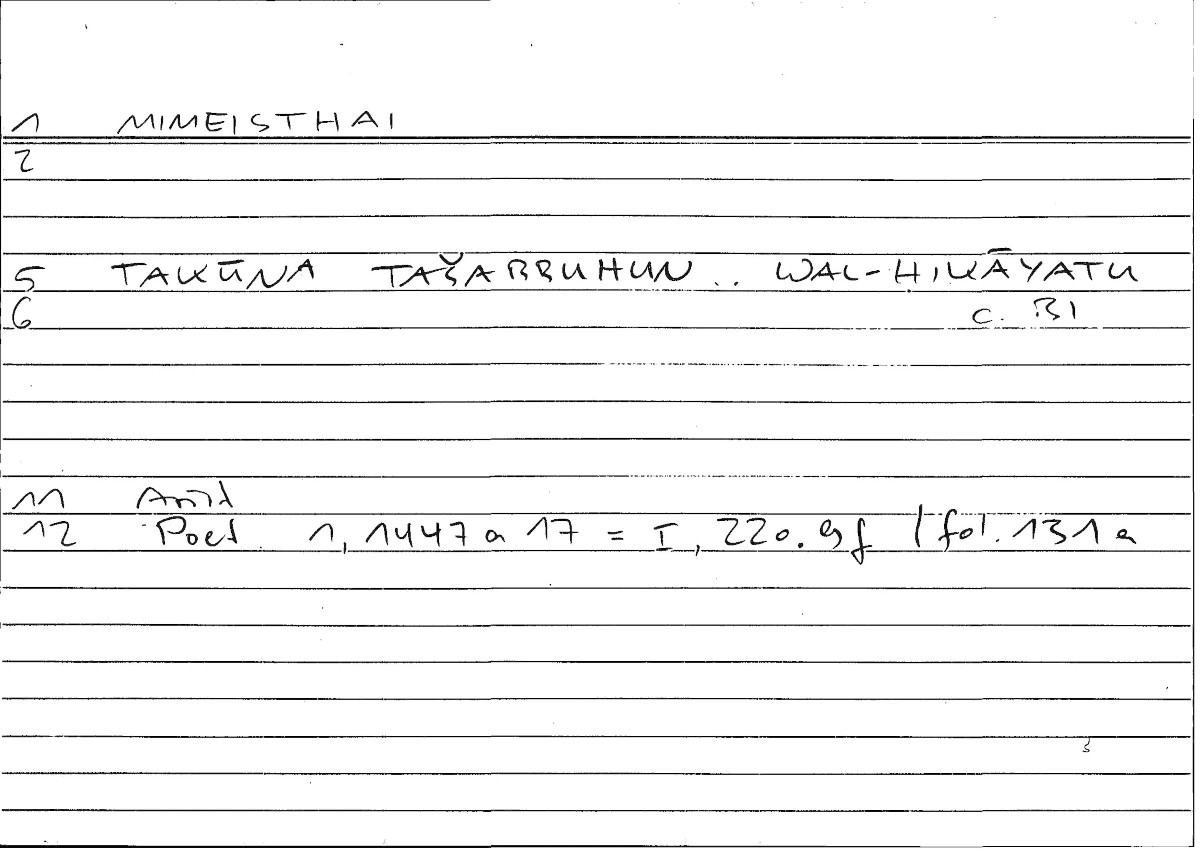 1 MIMEISTHAI
2
5 TAKŪNA TAŠABBUHUN .. WAL-HIKĀYATU
6 c. BI
11 Arist
12 Poet. 1, 1447a 17 = I, 220.9f / fol. 131a